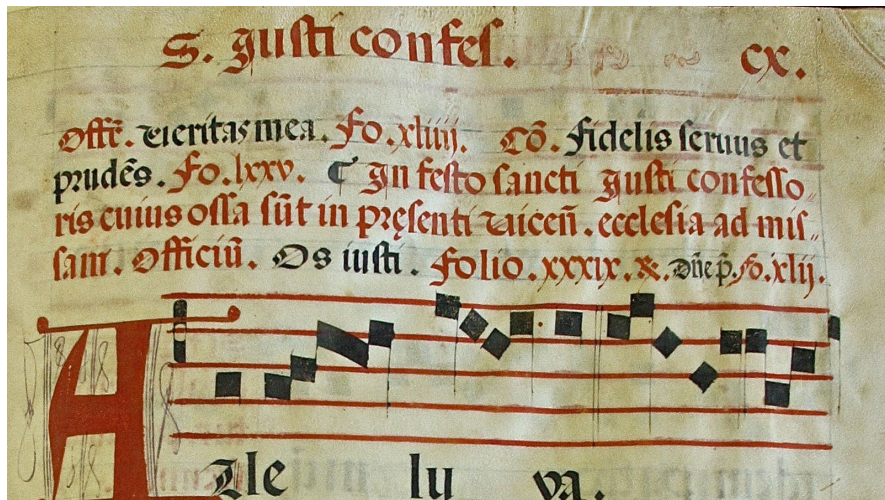 S. Justi confes. cx.
Offē. Veritas mea. Fo. xliiij. Cō. Fidelis seruus et
prudēs. Fo. lxxv. ¶ In festo sancti Justi confesso
ris cuius ossa sūt in pręsenti Viceñ. ecclesia ad mis„
sam. Officiū. Os iusti. Folio. xxxix. &. Dñe p̄. fo. xlij.
Alle lu ya.